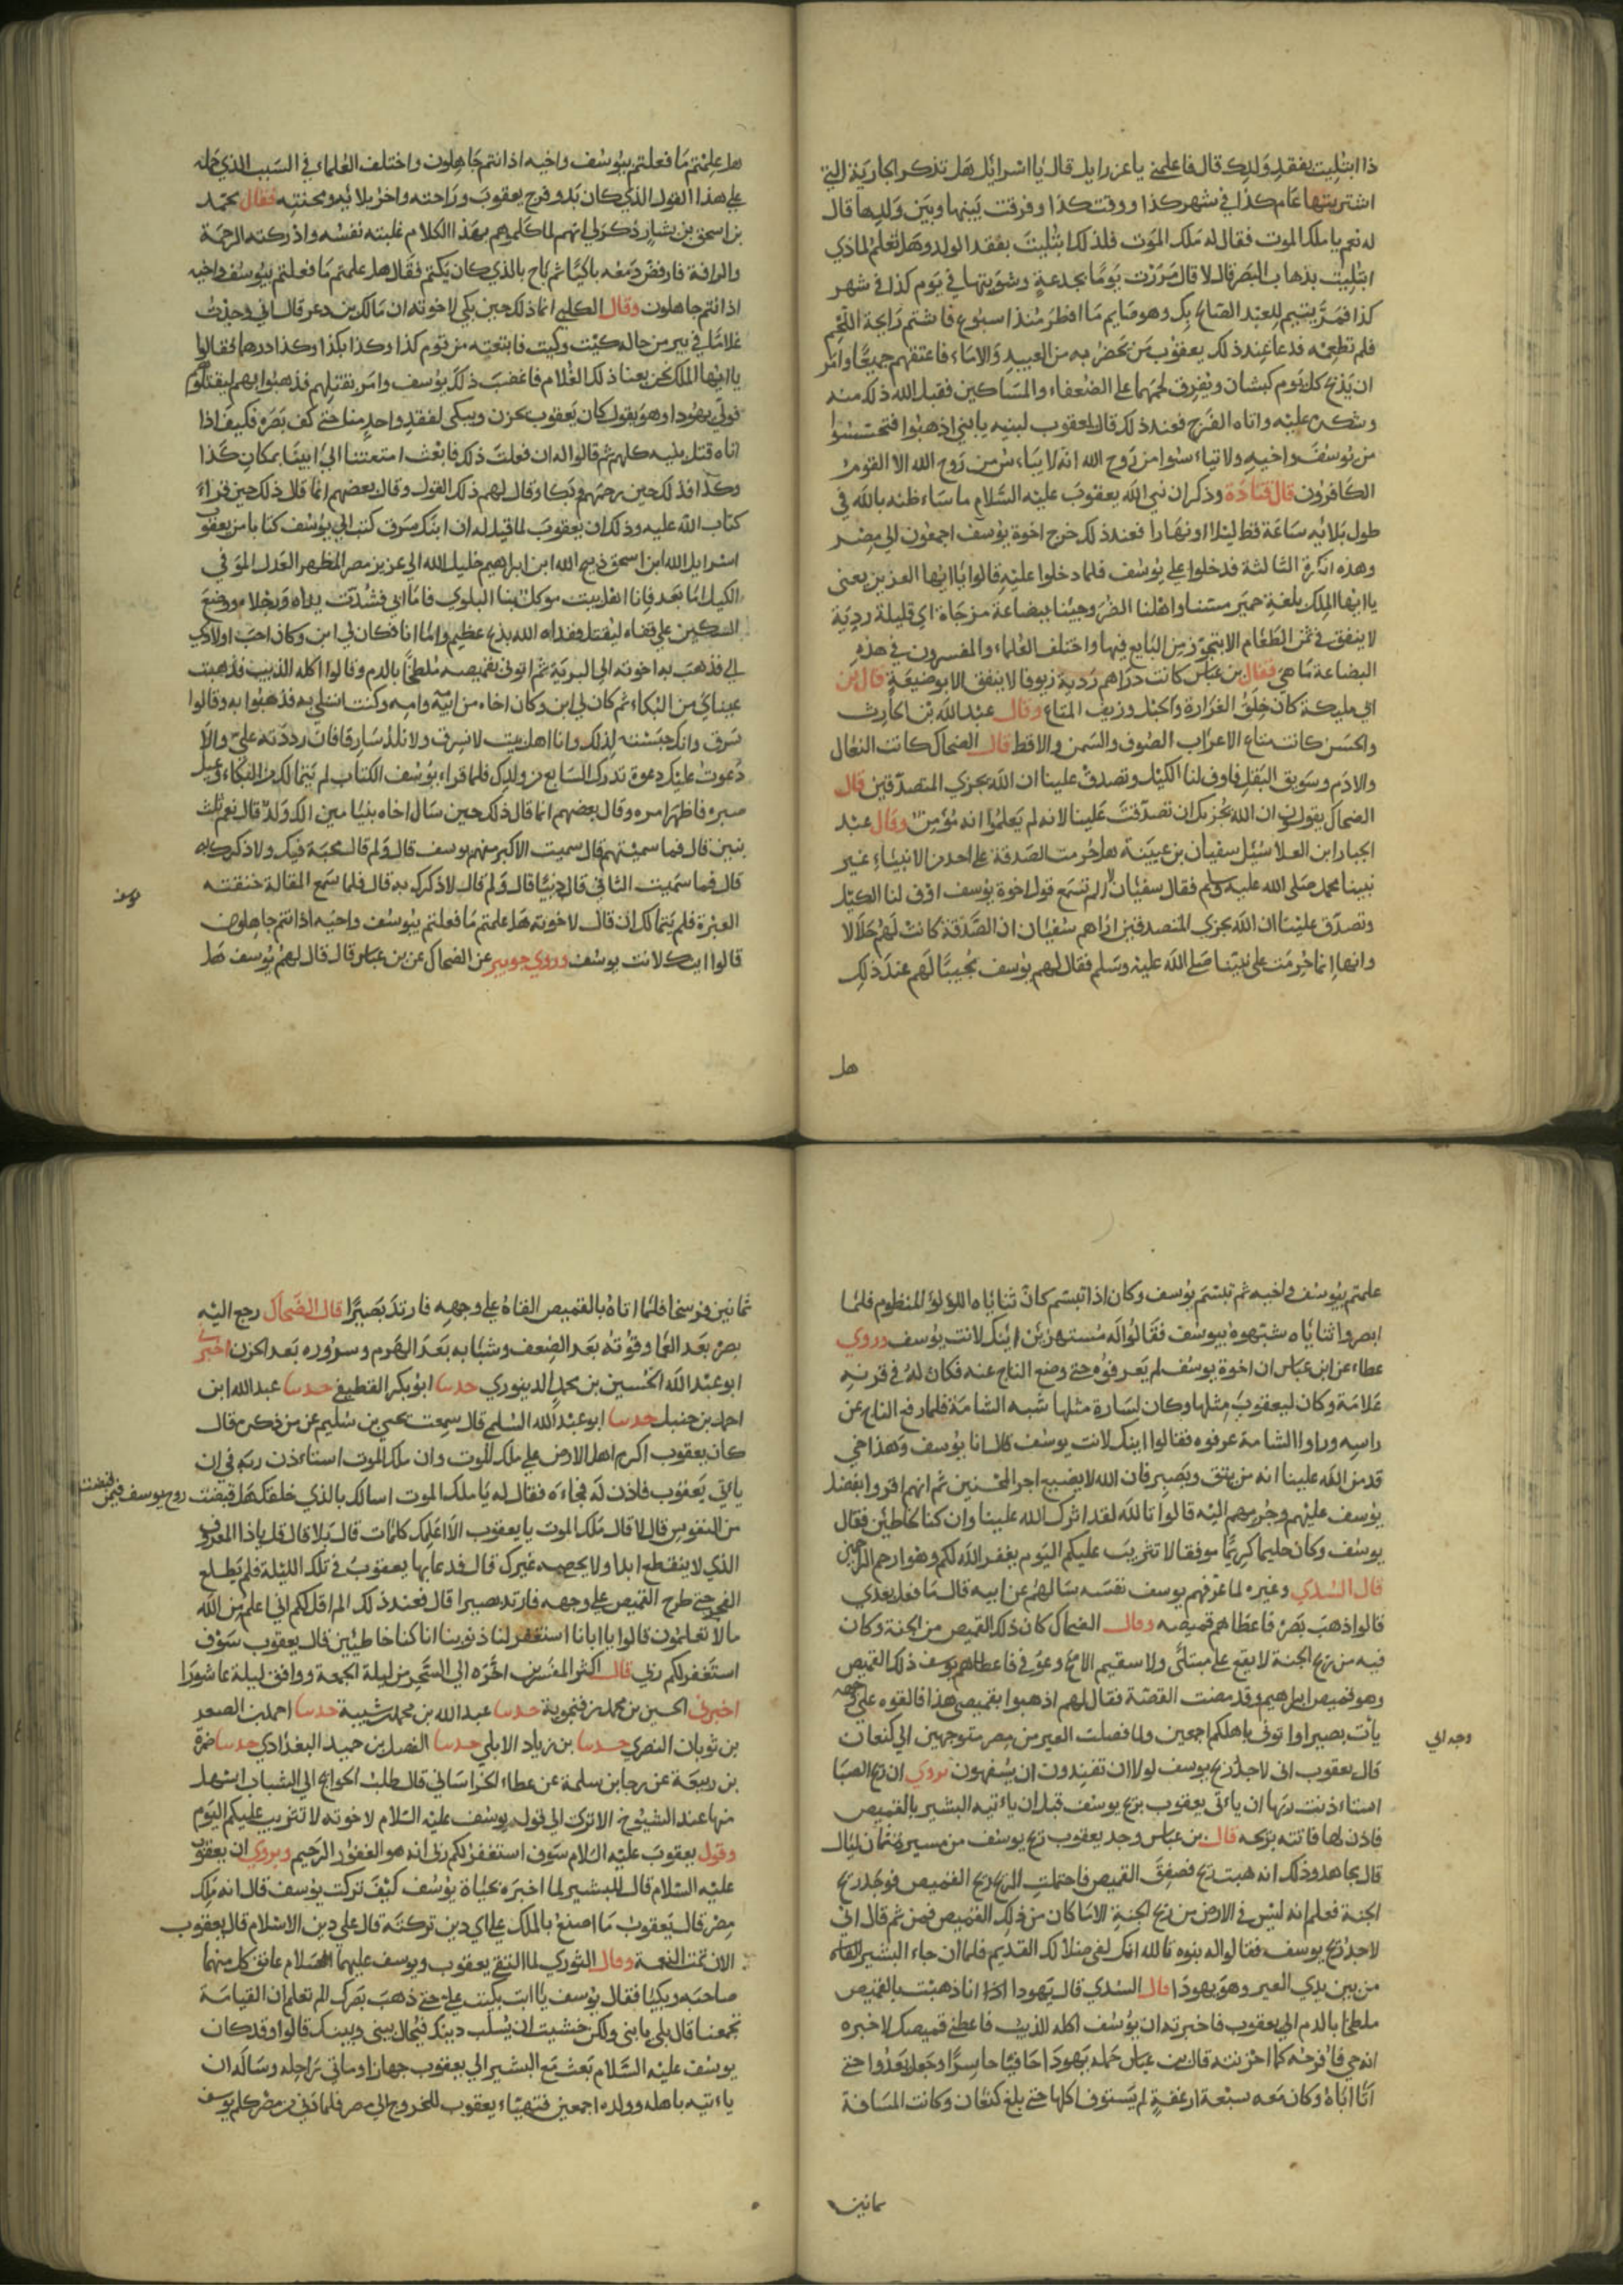 ذا ابتليت بفقد ولدك قال فاعلمني يا عزرايل قال يا اسرائل هل تذكر الجارية التي
اشتريتها عام كذا في شهر كذا ووقت كذا وفرقت بينها وبين ولدها قال
له نعم يا ملك الموت فقال له ملك الموت فلذلك ابتليت بفقد الولد وهل تعلم لماذي
ابتليت بذهاب البصر قال لا قال مررت يوما بجدعة وشويتها في يوم كذا في شهر
كذا فمر يتيم للعبد الصالح بك وهو صايم ما افطر منذ اسبوع فاشتم رايحة اللحم
فلم تطعمه فدعا عند ذلك يعقوب من بحضر به من العبيد والاماء فاعتقهم جميعا وامر
ان يذبح كل يوم كبشان ويفرق لحمهما على الضعفاء والمساكين فقبل الله ذلك منه
وشكره عليه واتاه الفرج فعند ذلك قال يعقوب لبنيه يا بني اذهبوا فتحسسوا
من يوسف واخيه ولا تياسوا من روح الله انه لا يياس من روح الله الا القوم
الكافرون قال قتادة وذكر ان نبي الله يعقوب عليه السلام ما ساء ظنه بالله في
طول بلائه ساعة قط ليلا او نهارا فعند ذلك خرج اخوة يوسف اجمعون الى مصر
وهذه الكرة الثالثة فدخلوا على يوسف فلما دخلوا عليه قالوا يا ايها العزيز يعني
يا ايها الملك بلغة حمير مسنا واهلنا الضر وجينا ببضاعة مزجاة اي قليلة ردية
لا ينفق في ثمن الطعام الا بتجوز من البايع فيها واختلف العلماء والمفسرون في هذه
البضاعة ما هي فقال بن عباس كانت دراهم ردية زيوفا لا ينفق الا بوضيعة قال بن
ابي مليكة كان خلق الغرارة والحبل وزيف المتاع وقال عبد الله بن الحارث
والحسن كانت متاع الاعراب الصوف والسمن والاقط قال الضحاك كانت النعال
والادم وسويق البقل فاوف لنا الكيل وتصدق علينا ان الله يجزي المتصدقين قال
الضحاك يقولون ان الله يجزيك ان تصدقت علينا لانه لم يعلموا انه مؤمن وقال عبد
الجبار ابن العلا سئل سفيان بن عيينة هل حرمت الصدقة على احد من الانبياء غير
نبينا محمد صلى الله عليه وسلم فقال سفيان الم تسمع قول اخوة يوسف اوف لنا الكيل
وتصدق علينا ان الله يجزي المتصدقين اراهم سفيان ان الصدقة كانت لهم حلالا
وانها انما حرمت على نبينا صلى الله عليه وسلم فقال لهم يوسف مجيبا لهم عند ذلك
هل
هل علمتم ما فعلتم بيوسف واخيه اذ انتم جاهلون واختلف العلماء في السبب الذي حمله
على هذا القول الذي كان بدو فرج يعقوب وراحته واخر بلائه ومحنته فقال محمد
بن اسحق بن بشار ذكر لي انهم لما كلموهم بهذا الكلام غلبته نفسه وادركته الرحمة
والرافة فارفض دمعه باكيا ثم باح بالذي كان يكتم فقال هل علمتم ما فعلتم بيوسف واخيه
اذ انتم جاهلون وقال الكلبي انما ذلك حين بكى لاخوته ان مالك بن دعر قال اني وجدت
غلاما في بير من حاله كيت وكيت فابتعته من قوم كذا وكذا بكذا وكذا درهما فقالوا
يا ايها الملك نحن بعنا ذلك الغلام فاغضب ذلك يوسف وامر بقتلهم فذهبوا بهم ليقتلوهم
فولى يهودا وهو يقول كان يعقوب يحزن ويبكي لفقد واحد منا حتى كف بصره فكيف اذا
اتاه قتل بنيه كلهم ثم قالوا له ان فعلت ذلك فابعث امتعتنا الى ابينا بمكان كذا
وكذا فذلك حين رحمهم وبكا وقال لهم ذلك القول وقال بعضهم انما قال ذلك حين قراء
كتاب الله عليه وذلك ان يعقوب لما قيل له ان ابنك سرق كتب الى يوسف كتابا من يعقوب
اسرايل الله ابن اسحق ذبيح الله ابن ابراهيم خليل الله الى عزيز مصر المظهر العدل الموفي
الكيل اما بعد فانا اهل بيت موكل بنا البلوى فاما ابي فشدت يداه ورجلاه ووضع
السكين على قفاه ليقتل ففداه الله بذبح عظيم واما انا فكان لي ابن وكان احب اولادي
الي فذهب به اخوته الى البرية ثم اتوني بقميصه ملطخا بالدم وقالوا اكله الذيب فذهبت
عيناي من البكاء ثم كان لي ابن وكان اخاه من ابيه وامه وكنت اتسلى به فذهبوا به وقالوا
سرق وانك حبسته لذلك وانا اهل بيت لا نسرق ولا نلد سارقا فان رددته علي والا
دعوت عليك دعوة تدرك السابع من ولدك فلما قراء يوسف الكتاب لم يتمالك من البكاء وعيل
صبره فاظهر امره وقال بعضهم انما قال ذلك حين سال اخاه بنيامين الك ولد قال نعم ثلث
بنين قال فما سميتهم قال سميت الاكبر منهم يوسف قال ولم قال محبة فيك ولاذكرك به
قال فما سميت الثاني قال ذيبا قال ولم قال لاذكرك به قال فلما سمع المقالة خنقته
العبرة فلم يتمالك ان قال لاخوته هل علمتم ما فعلتم بيوسف واخيه اذ انتم جاهلون
قالوا اينك لانت يوسف وروي جويبر عن الضحاك عن بن عباس قال قال لهم يوسف هل
علمتم بيوسف واخيه ثم تبسم يوسف وكان اذا تبسم كان ثناياه اللولو المنظوم فلما
ابصروا ثناياه شبهوه بيوسف فقالوا له مستهزين اينك لانت يوسف وروي
عطاء عن ابن عباس ان اخوة يوسف لم يعرفوه حتى وضع التاج عنه فكان له في قرنه
علامة وكان ليعقوب مثلها وكان لسارة مثلها شبه الشامة فلما رفع التاج عن
راسه وراوا الشامة عرفوه فقالوا اينك لانت يوسف قال انا يوسف وهذا اخي
قد من الله علينا انه من يتق ويصبر فان الله لا يضيع اجر المحسنين ثم انهم اقروا بفضل
يوسف عليهم وجرمهم اليه قالوا تالله لقد اثرك الله علينا وان كنا لخاطين فقال
يوسف وكان حليما كريما موفقا لا تثريب عليكم اليوم يغفر الله لكم وهو ارحم الراحمين
قال السدي وغيره لما عرفهم يوسف نفسه سالهم عن ابيه قال ما فعل بعدي
قالوا ذهب بصره فاعطاهم قميصه وقال الضحاك كان ذلك القميص من الجنة وكان
فيه من ريح الجنة لا يقع على مبتلى ولا سقيم الا صح وعوفي فاعطاهم يوسف ذلك القميص
وهو قميص ابراهيم وقد مضت القصة فقال لهم اذهبوا بقميصي هذا فالقوه على وجه
وجه ابي
يات بصيرا واتوني باهلكم اجمعين ولما فصلت العير من مصر متوجهين الى كنعان
قال يعقوب اني لاجد ريح يوسف لولا ان تفندون ان يسفهون يروي ان ريح الصبا
استاذنت ربها ان ياتي يعقوب بريح يوسف قبل ان ياتيه البشير بالقميص
فاذن لها فاتته بريحه قال بن عباس وجد يعقوب ريح يوسف من مسيرة ثمان ليال
قال مجاهد وذلك انه هبت ريح فصفق القميص فاحتملت الريح ريح القميص فوجد ريح
الجنة فعلم انه ليس في الارض من ريح الجنة الا ما كان من ذلك القميص فمن ثم قال اني
لاجد ريح يوسف فقالوا له بنوه تالله انك لفي ضلالك القديم فلما ان جاء البشير القاه
من بين يدي العير وهو يهودا قال السدي قال يهودا انا ذهبت بالقميص
ملطخا بالدم الى يعقوب فاخبرته ان يوسف اكله الذيب فاعطني قميصك لاخبره
انه حي فافرحه كما احزنته قال بن عباس حمله يهودا حافيا حاسرا وجعل يعدوا حتى
اتا اباه وكان معه سبعة ارغفة لم يستوف اكلها حتى بلغ كنعان وكانت المسافة
ثمانين
ثمانين فرسخا فلما اتاه بالقميص القاه على وجهه فارتد بصيرا قال الضحاك رجع اليه
بصره بعد العما وقوته بعد الضعف وشبابه بعد الهرم وسروره بعد الحزن اخبرني
ابو عبد الله الحسين بن محمد الدينوري حدسا ابو بكر القطيعي حدسا عبد الله ابن
احمد بن حنبل حدسا ابو عبد الله السلمي قال سمعت يحيى بن سليم عن من ذكره قال
كان يعقوب اكرم اهل الارض على ملك الموت وان ملك الموت استاذن ربه في ان
ياتي يعقوب فاذن له فجاءه فقال له يا ملك الموت اسالك بالذي خلقك هل قبضت روح يوسف فيمن قبضت
من النفوس قال لا قال ملك الموت يا يعقوب الا اعلمك كلمات قال بلا قال قل يا ذا المعروف
الذي لا ينقطع ابدا ولا يحصيه غيرك قال فدعا بها يعقوب في تلك الليلة فلم يطلع
الفجر حتى طرح القميص على وجهه فارتد بصيرا قال فعند ذلك الم اقل لكم اني اعلم من الله
ما لا تعلمون قالوا يا ابانا استغفر لنا ذنوبنا انا كنا خاطيين قال يعقوب سوف
استغفر لكم ربي قال اكثر المفسرين اخره الى السحر من ليلة الجمعة ووافق ليلة عاشورا
اخبرني الحسين بن محمد بن فنجوية حدسا عبد الله بن محمد شيبة حدسا احمد بن الصعر
بن ثوبان النصري حدسا بن زياد الابلي حدسا الفضل بن حميد البغدادي حدسا ضمرة
بن ربيعة عن رجا بن سلمة عن عطاء الخراساني قال طلب الحوايج الى الشباب اسهل
منها عند الشيوخ الا ترى الى قول يوسف عليه السلام لاخوته لا تثريب عليكم اليوم
وقول يعقوب عليه السلام سوف استغفر لكم ربي انه هو الغفور الرحيم ويروي ان يعقوب
عليه السلام قال للبشير لما اخبره بحياة يوسف كيف تركت يوسف قال انه ملك
مصر قال يعقوب ما اصنع بالملك على اي دين تركته قال على دين الاسلام قال يعقوب
الان تمت النعمة وقال الثوري لما التقى يعقوب ويوسف عليهما السلام عانق كل منهما
صاحبه وبكيا فقال يوسف يا ابت بكيت علي حتى ذهب بصرك الم تعلم ان القيامة
تجمعنا قال بلى يا بني ولكن خشيت ان يسلب دينك فيحال بيني وبينك قالوا وقد كان
يوسف عليه السلام بعث مع البشير الى يعقوب جهازا ومائتي راحلة وساله ان
ياتيه باهله وولده اجمعين فتهياء يعقوب للخروج الى مصر فلما دنى من مصر كلم يوسف